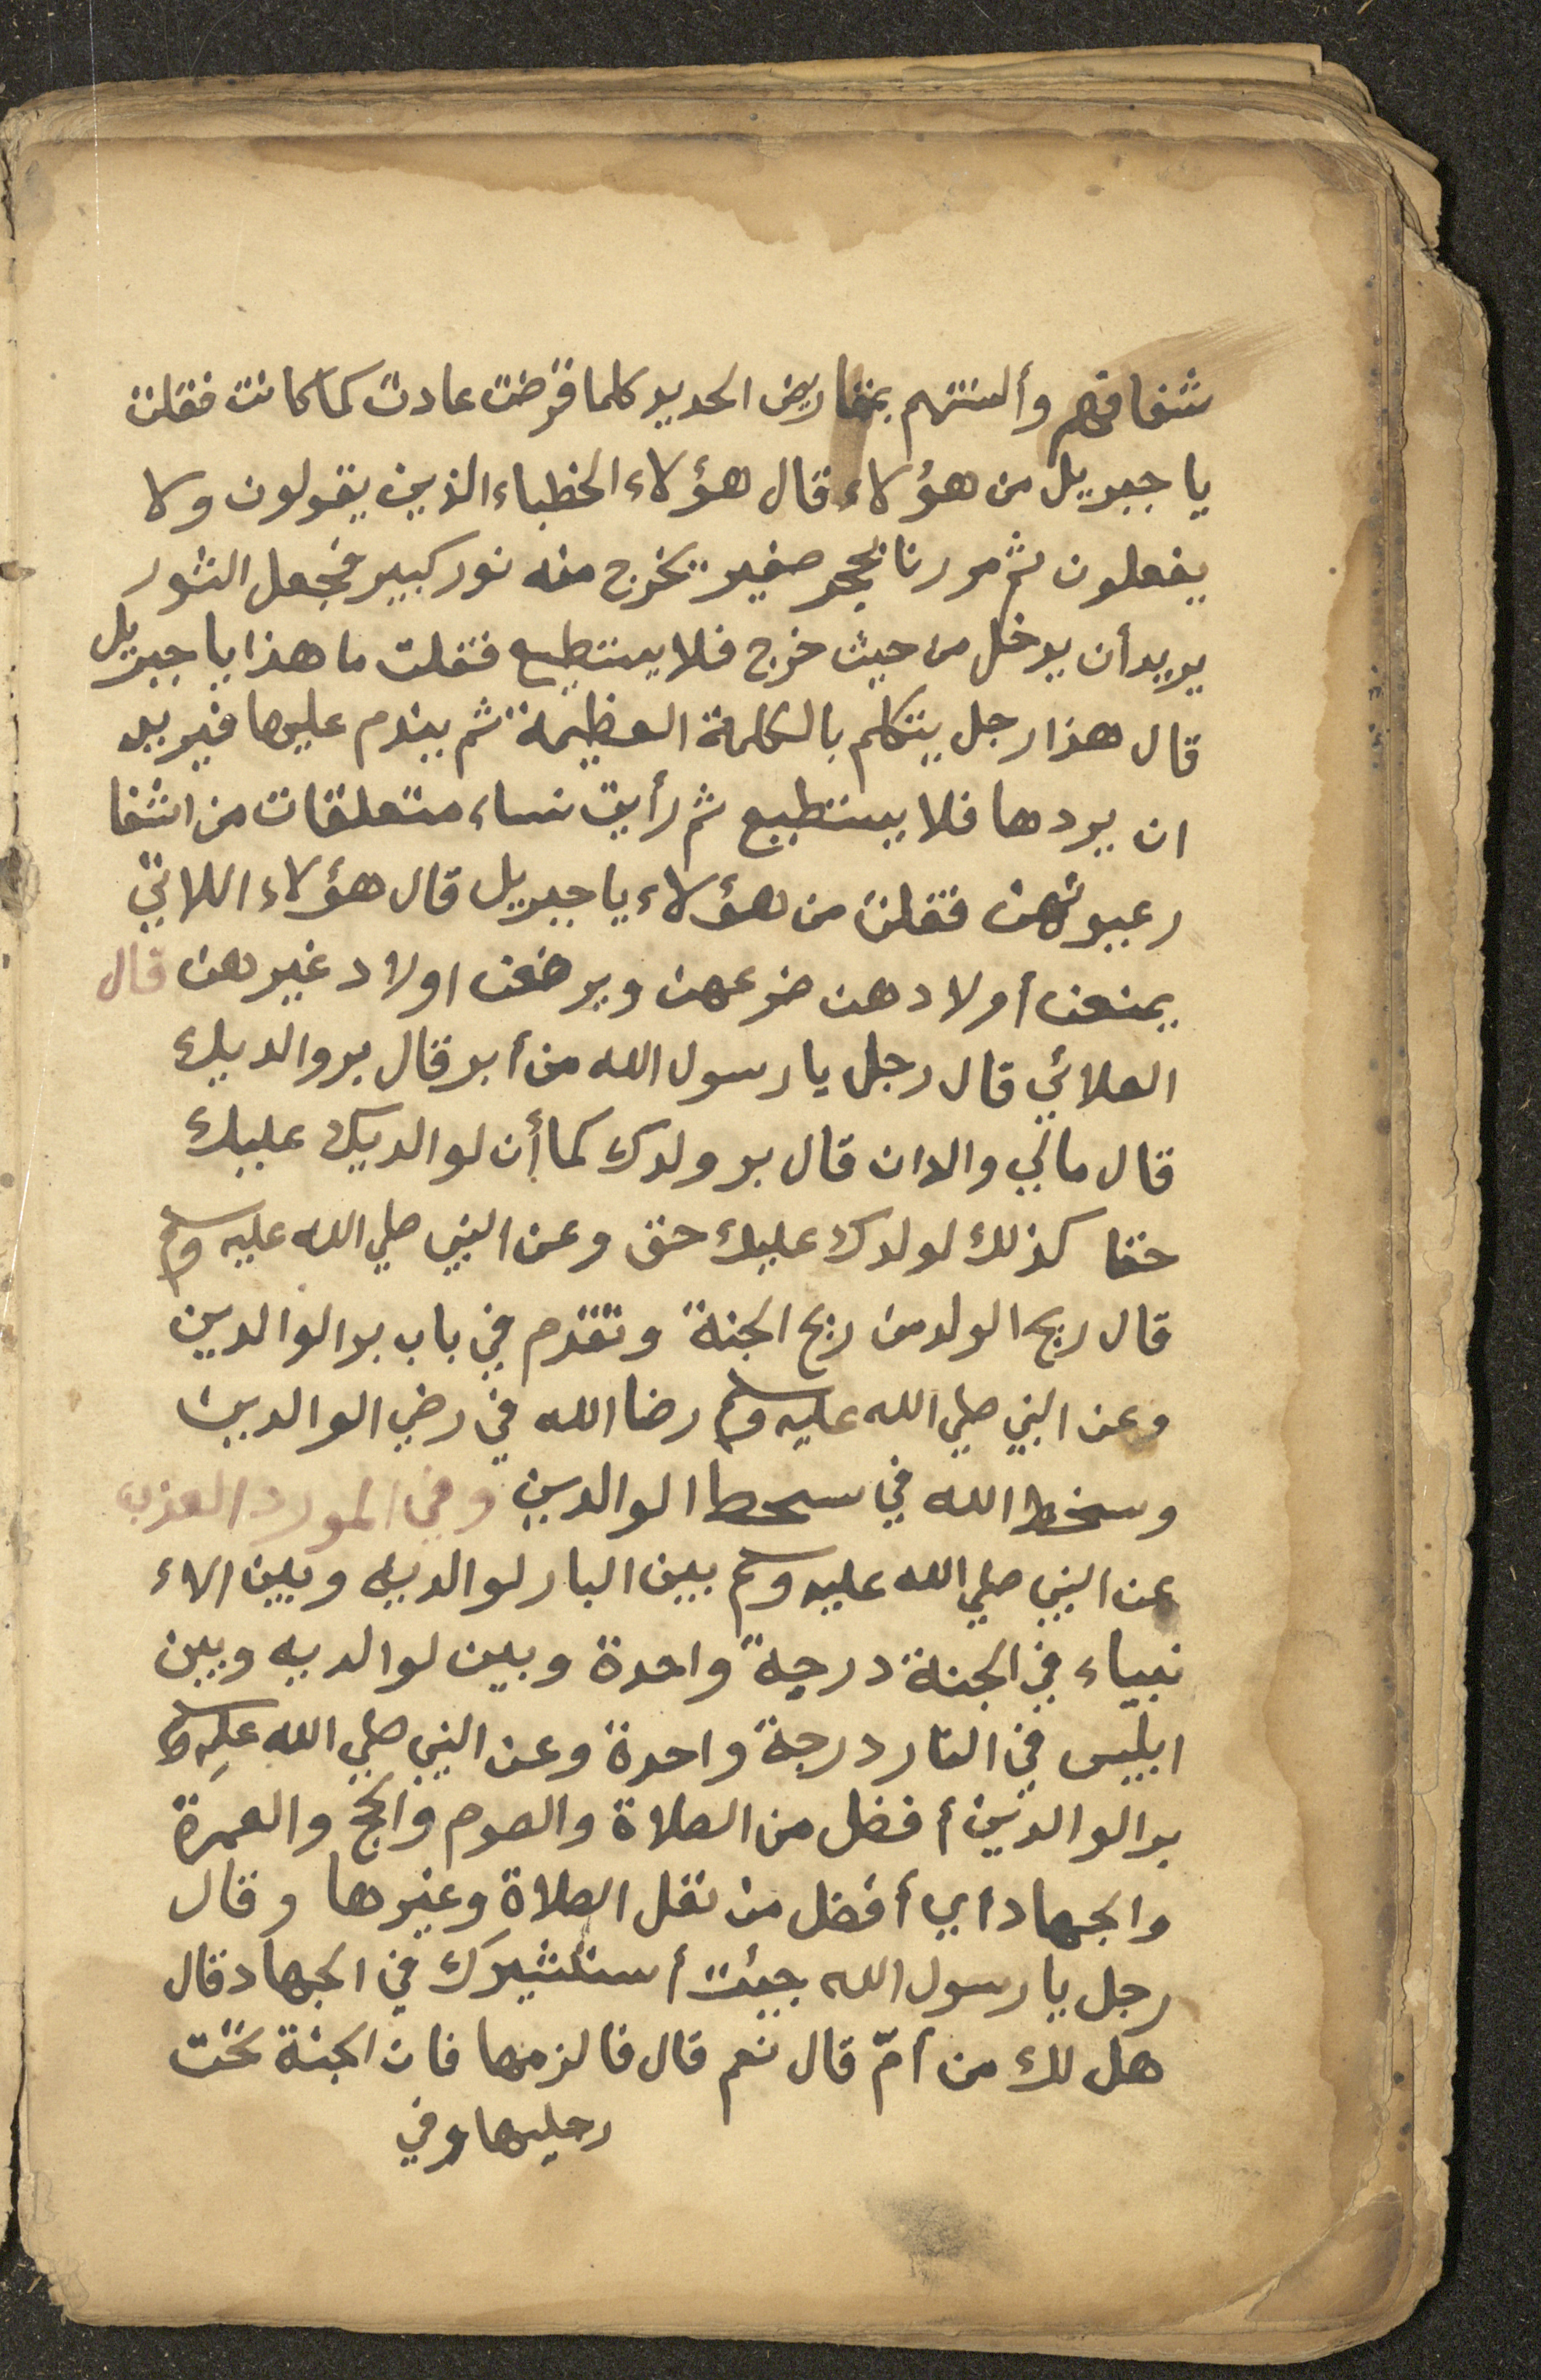 شفافهم وألسنتهم بمقاريض الحديد كلما قرضت عادت كما كانت فقلت
يا جبريل من هؤلاء قال هؤلاء الخطباء الذين يقولون ولا
يفعلون ثم مررنا بحجر صغير يخرج منه نور كبير فجعل الثور
يريد أن يدخل من حيث خرج فلا يستطيع فقلت ما هذا يا جبريل
قال هذا رجل يتكلم بالكلمة العظيمة ثم يندم عليها فيريد
ان يردها فلا يستطيع ثم رأيت نساء متعلقات من اشفا
رعيونهن فقلت من هؤلاء يا جبريل قال هؤلاء اللاتي
يمنعن أولادهن ضرعهن ويرضعن اولاد غيرهن قال
العلائي قال رجل يا رسول الله من أبر قال بر والديك
قال مالي والدان قال بر ولدك كما أن لوالديك عليك
حقا كذلك لولدك عليك حق وعن النبي صلي الله عليه وسلم
قال ريح الولد من ريح الجنة وتقدم في باب بر الوالدين
وعن النبي صلي الله عليه وسلم رضا الله في رضي الوالدين
وسخط الله في سخط الوالدين وفي المورد العذب
عن النبي صلي الله عليه وسلم بين البار لوالديه وبين الاء
نبياء في الجنة درجة واحدة وبين لوالديه وبين
ابليس في النار درجة واحدة وعن النبي صلي الله عليه وسلم
بر الوالدين أفضل من الصلاة والصوم والحج والعمرة
والجهاد أي أفضل من نفل الصلاة وغيرها وقال
رجل يا رسول الله جيئت أستشيرك في الجهاد قال
هل لك من أمّ قال نعم قال فالزمها فان الجنة تحت
رجليها وفي